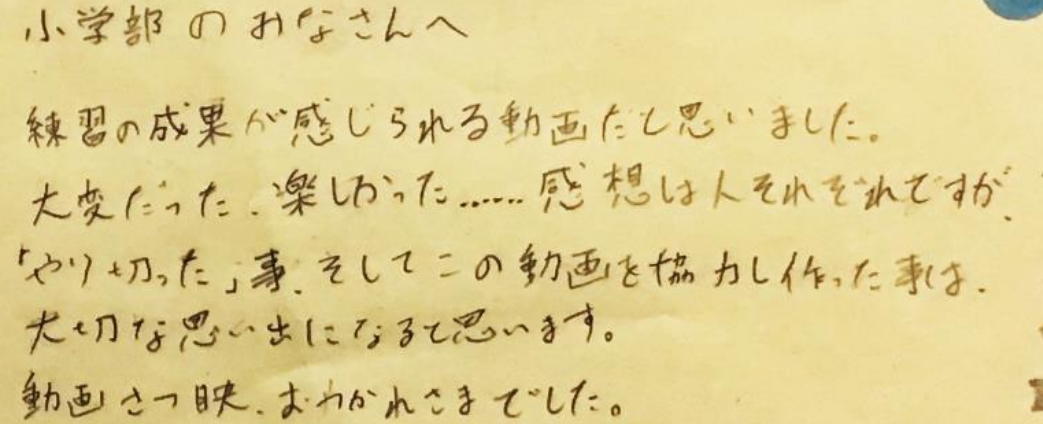 小学部のみなさんへ
練習の成果が感じられる動画だと思いました。
大変だった、楽しかった……感想は人それぞれですが、
「やり切った」事、そしてこの動画を協力し作った事は、
大切な思い出になると思います。
動画さつ映、おつかれさまでした。